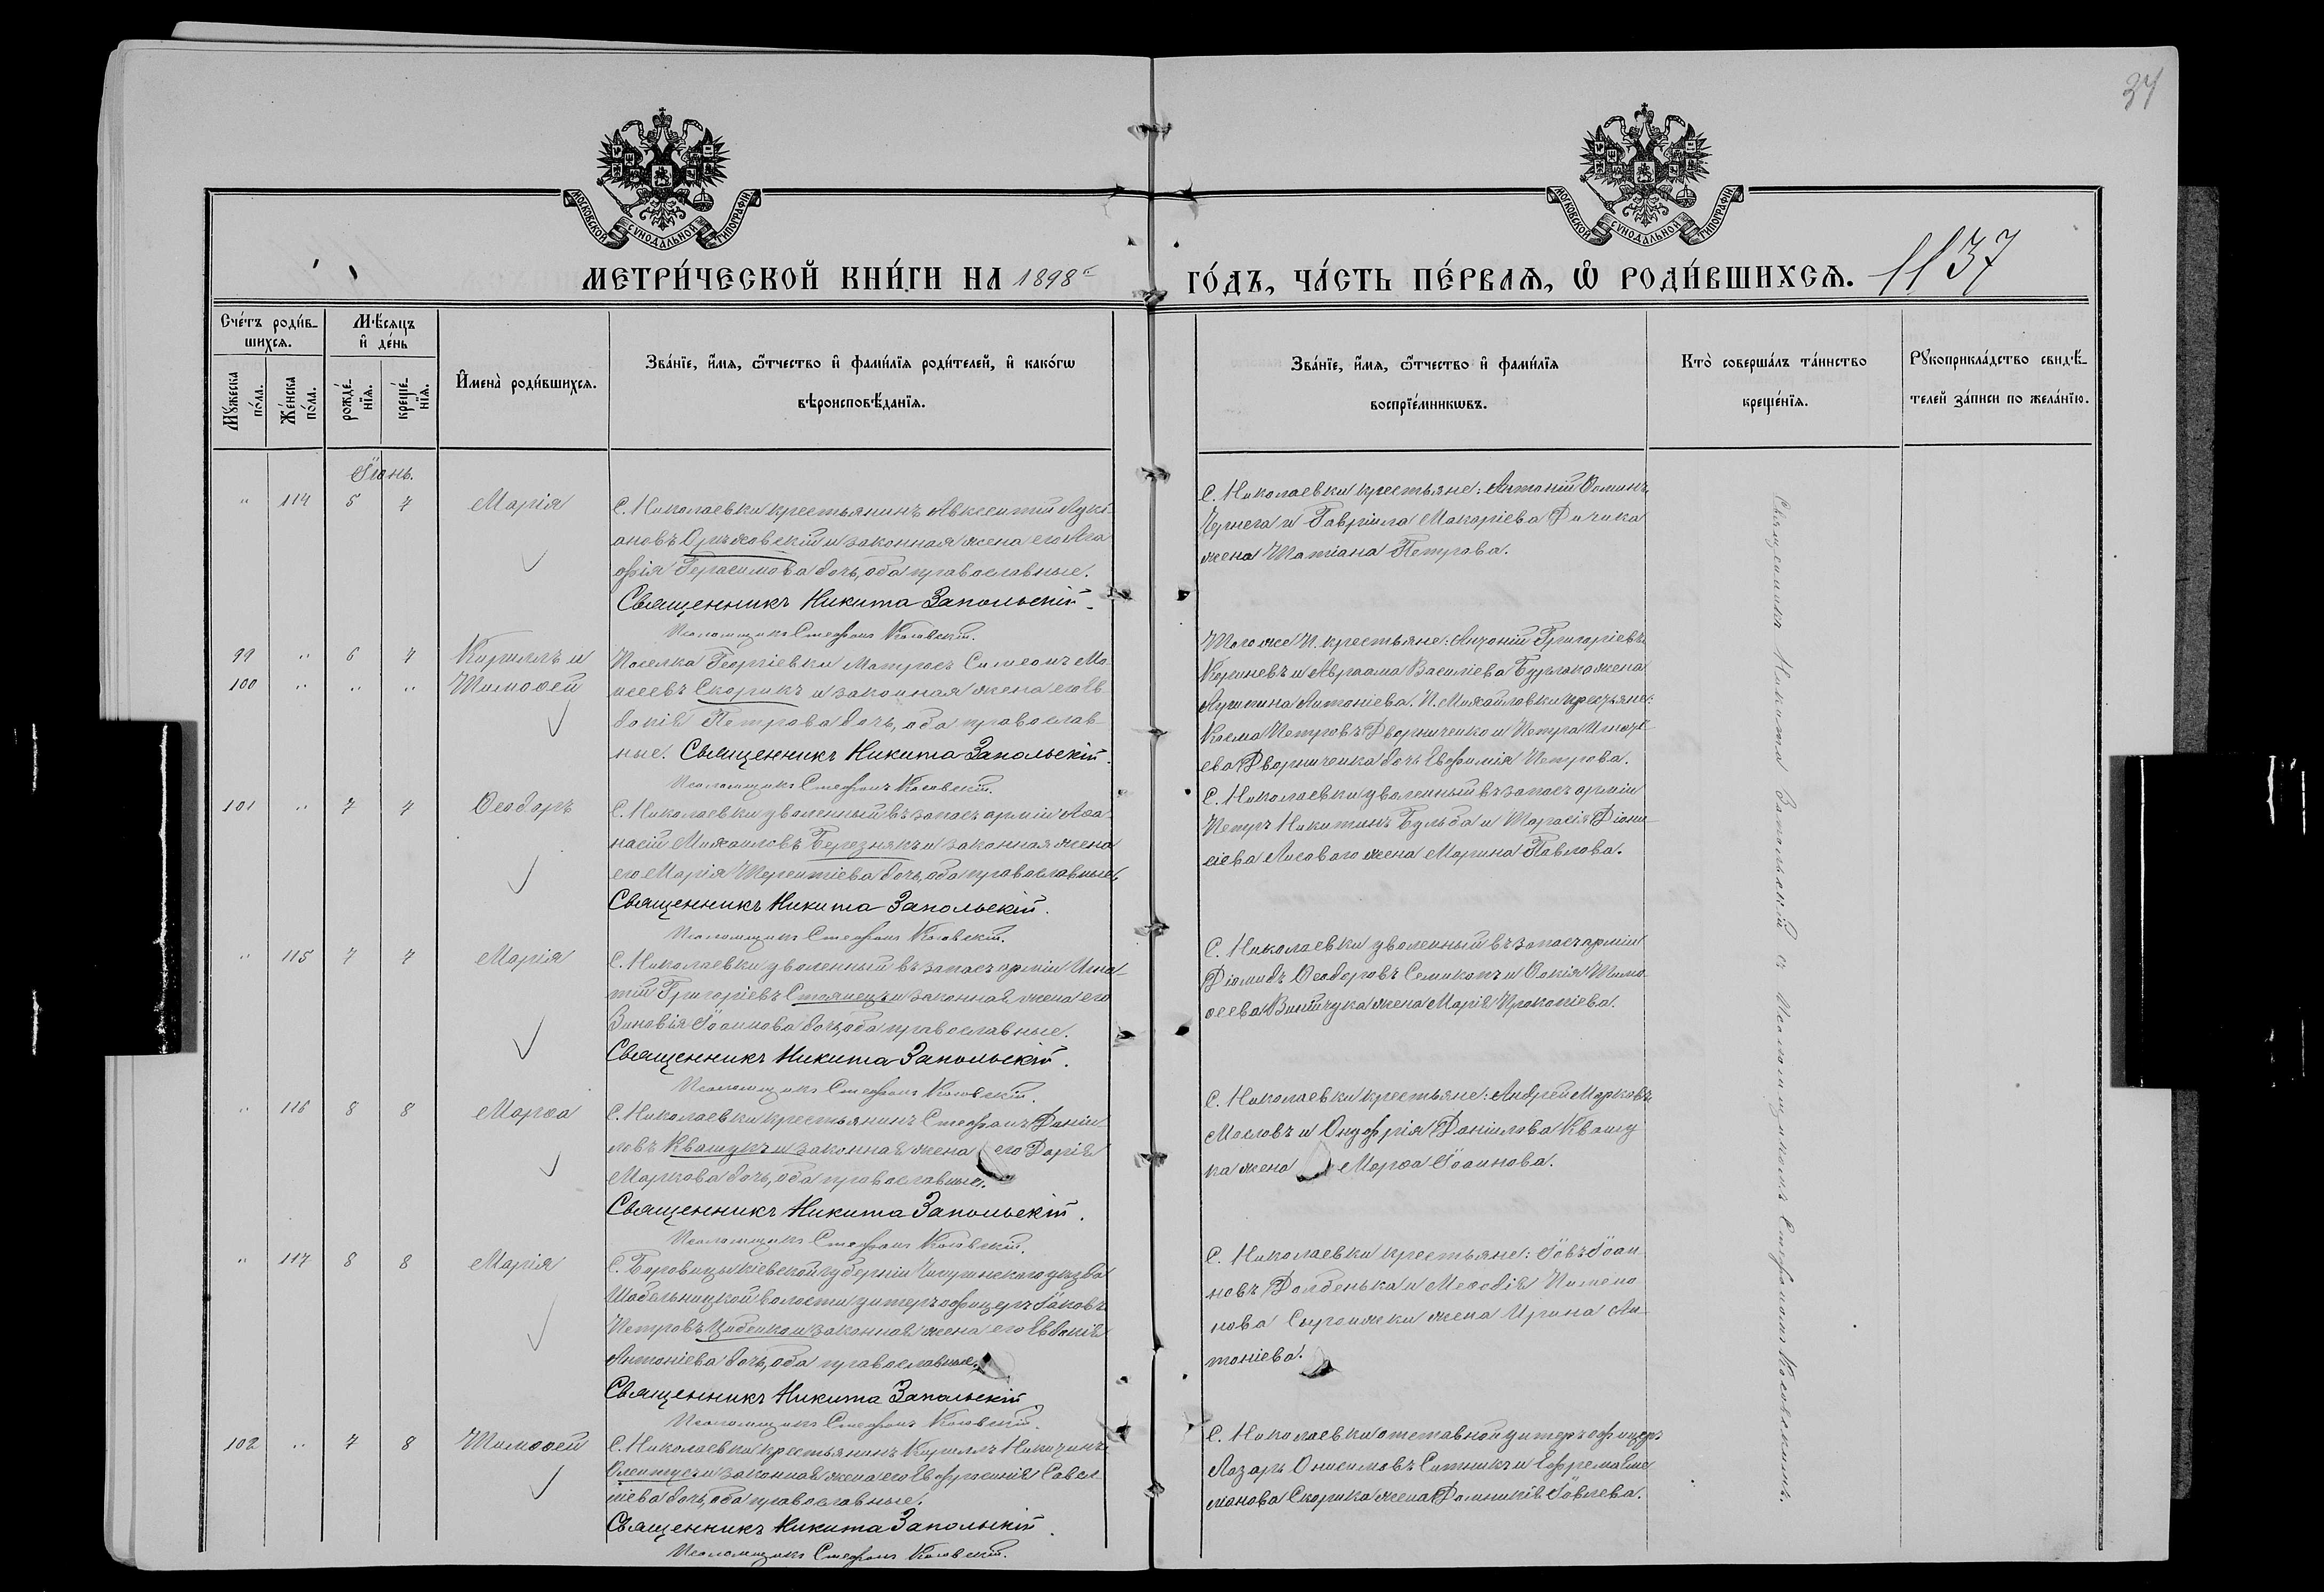 34
МОСКОВСКОЙ СѴНОДАЛЬНОЙ ТИПОГРАФІИ
МОСКОВСКОЙ СѴНОДАЛЬНОЙ ТИПОГРАФІИ
МЕТРИ́ЧЕСКОЙ КНИ́ГИ НА 1898 г
ГО́ДЪ, ЧА́СТЬ ПЕ́РВАѦ, Ѡ РОДИ́ВШИХСѦ. 1137
Сче́тъ роди́в-
шихсѧ.
Мужеска по́ла.
Же́нска по́ла.
Мѣ́сѧцъ
и де́нь
рожде́-
нїѧ.
креще́-
нїѧ.
Имена̀ роди́вшихсѧ.
Зва́нїе, и́мѧ, ѻ́тчество и фами́лїѧ роди́телей, и како́гѡ
вѣроисповѣ́данїѧ.
Зва́нїе, и́мѧ, ѻ́тчество и фами́лїѧ
воспрїе́мникѡвъ.
Кто̀ соверша́лъ та́инство
креще́нїѧ.
Рукоприкла́дство свидѣ́-
телей за́писи по жела́нїю.
Іюнь.
" 114 5 7 Марія
С. Николаевки крестьянинъ Авксентій Лукі-
ановъ Оржховскій и законная жена его Ага-
фія Герасимова дочь, оба православные.
Священникъ Никита Запольскій.
Псаломщикъ Стефанъ Косовскій.
С. Николаевки крестьяне: Антоній Ѳоминъ
Чернега и Гавріила Макаріева Дичика
жена Татіана Петрова.
99 " 6 7 Кириллъ и
100 " " " Тимоѳей
Поселка Георгіевки матросъ Симеонъ Мо-
исеевъ Скорикъ и законная жена его Ев-
докія Петрова дочь, оба православ-
ные. Священникъ Никита Запольскій.
Псаломщикъ Стефанъ Косовскій.
Того же п. крестьяне: Антоній Григоріевъ
Корневъ и Авраама Василіева Бурлако жена
Агрипина Антоніева. П. Михайловки крестьяне:
Косма Петровъ Дворниченко и Петра Игнаті-
ева Дворниченка дочь Евфимія Петрова.
101 " 7 7 Ѳеодоръ
С. Николаевки уволенный въ запасъ арміи Аѳа-
насій Михаиловъ Березнякъ и законная жена
его Марія Терентіева дочь, оба православные.
Священникъ Никита Запольскій.
Псаломщикъ Стефанъ Косовскій.
С. Николаевки уволенный въ запасъ арміи
Петръ Никитинъ Бульба и Тарасія Діони-
сіева Лисоваго жена Марина Павлова.
" 115 7 7 Марія
С. Николаевки уволенный въ запасъ арміи Игна-
тій Григоріевъ Стоянецъ и законная жена его
Зиновія Іоаннова дочь, оба православные.
Священникъ Никита Запольскій.
Псаломщикъ Стефанъ Косовскій.
С. Николаевки уволенный въ запасъ арміи
Діомидъ Ѳеодоровъ Семикопъ и Фокія Тимо-
ѳеева Винтчука жена Марія Прокопіева.
" 116 8 8 Марѳа
С. Николаевки крестьянинъ Стефанъ Даніи-
ловъ Квашукъ и законная жена его Дарія
Маркова дочь, оба православные.
Священникъ Никита Запольскій.
Псаломщикъ Стефанъ Косовскій.
С. Николаевки крестьяне: Андрей Марковъ
Масловъ и Онуфрія Даніилова Квашу-
ка жена Марѳа Іоаннова.
" 117 8 8 Марія
С. Боровицы Кіевской губерніи Чигиринскаго уѣзда
Шабельницкой волости унтеръ офицеръ Іаковъ
Петровъ Цибенко и законная жена его Евдокія
Антоніева дочь, оба православные.
Священникъ Никита Запольскій
Псаломщикъ Стефанъ Косовскій.
С. Николаевки крестьяне: Іовъ Іоан-
новъ Долбенька и Меѳодія Пимено-
нова Сыромжки жена Ирина Ан-
тоніева.
102 " 7 8 Тимоѳей
С. Николаевки крестьянинъ Кириллъ Никитинъ
Олентусъ и законная жена его Евфросинія Савел-
ліева дочь, оба православные.
Священникъ Никита Запольскій.
Псаломщикъ Стефанъ Косовскій.
С. Николаевки отставной унтеръ офицеръ
Лазарь Онисимовъ Ситникъ и Ефрема Сим-
еонова Скорика жена Домникія Іовлева.
Священникъ Никита Запольскій съ Псаломщикомъ Стефаномъ Косовскимъ.